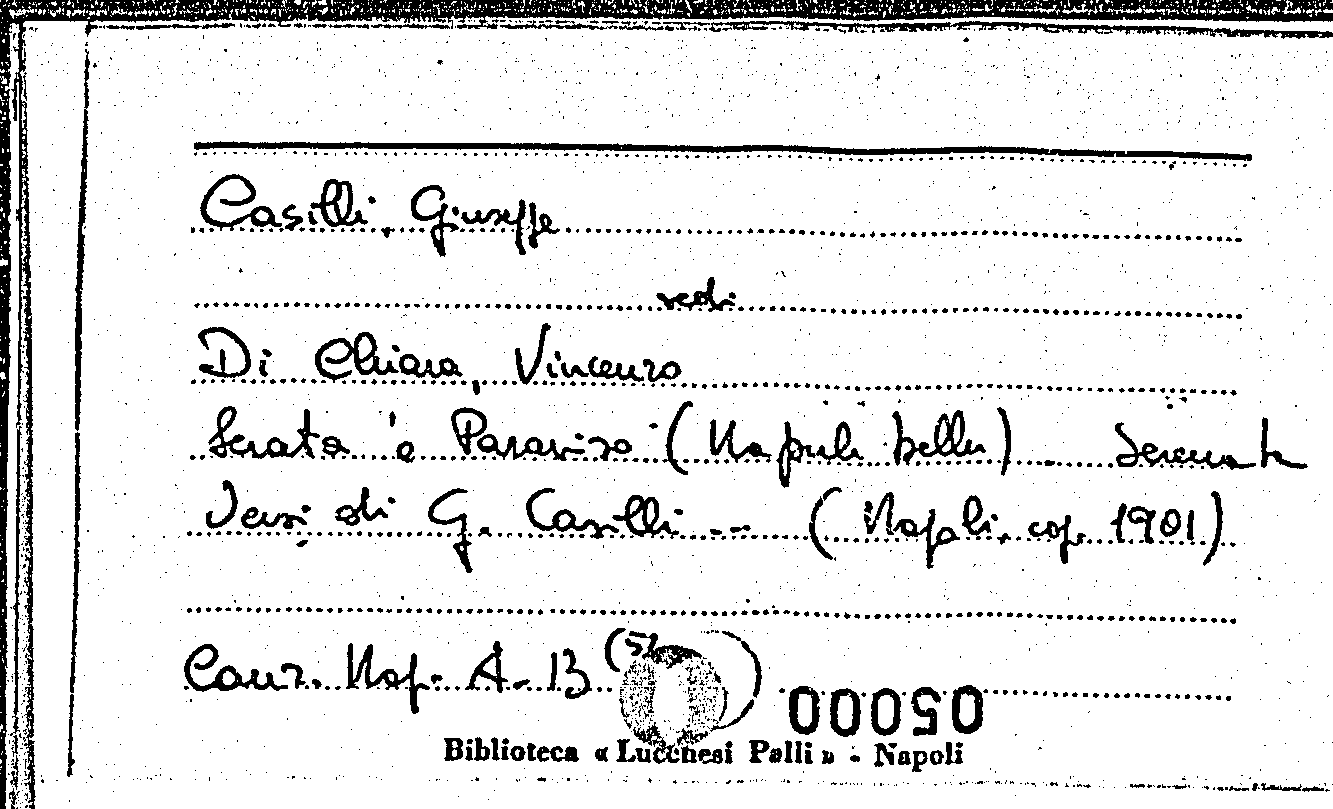 Casilli, Giuseppe
vedi
Di Chiara, Vincenzo
Serata 'e Paraviso (Napule bella). Serenata
Versi di G. Casilli ... (Napoli, cop. 1901)
Canz. Nap. A-13 (52)
00050
Biblioteca « Lucchesi Palli » - Napoli